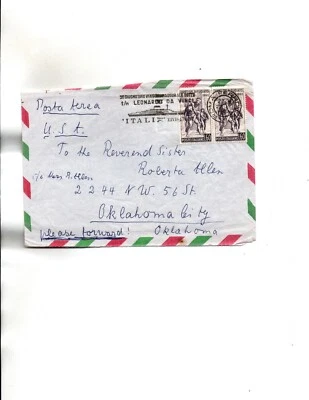 Posta Aerea
U.S.A.
To the Reverend Sister
Roberta Allen
c/o Mrs. R. Allen
2244 N.W. 56 St
Oklahoma City
please forward! Oklahoma
t/n LEONARDO DA VINCI
"ITALIA"